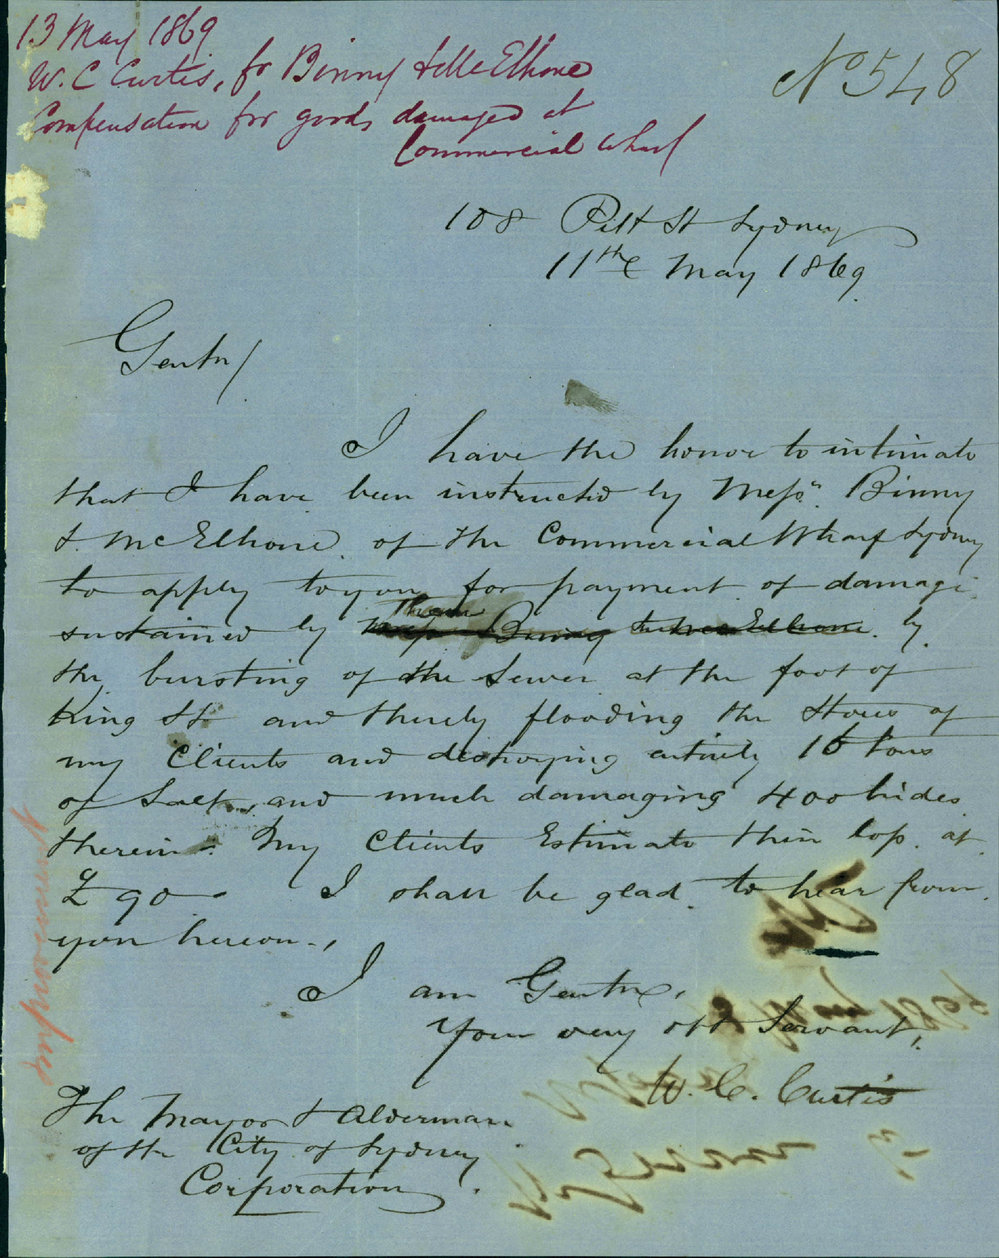 13 May 1869
W. C Curtis, fr Binny & McElhone
Compensation for goods damaged at
Commercial Wharf
No 548
108 Pitt St Sydney
11th May 1869
Gentn/
I have the honor to intimate
that I have been instructed by Messrs Binny
& McElhone of the Commercial Wharf Sydney
to apply to you for payment of damage
them
sustained by Messrs Binny & McElhone by
the bursting of the Sewer at the foot of
King St and thereby flooding the Stores of
my Clients and destroying entirely 16 tons
of Salt, and much damaging 400 hides
therein. My Clients Estimate their loss at
£90 I shall be glad to hear from
you hereon.,
I am Gentn,
Your very obt Servant,
W. C. Curtis
The Mayor & Alderman
of the City of Sydney
Corporation.
Improvement